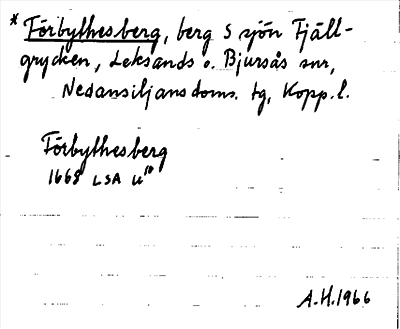 * Förbylhesberg, berg S sjön Fjäll-
grycken, Leksands o. Bjursås snr,
Nedansiljansdoms. tg, Kopp. l.
Förbylhesberg
1668 LSA U¹⁰
A.H. 1966